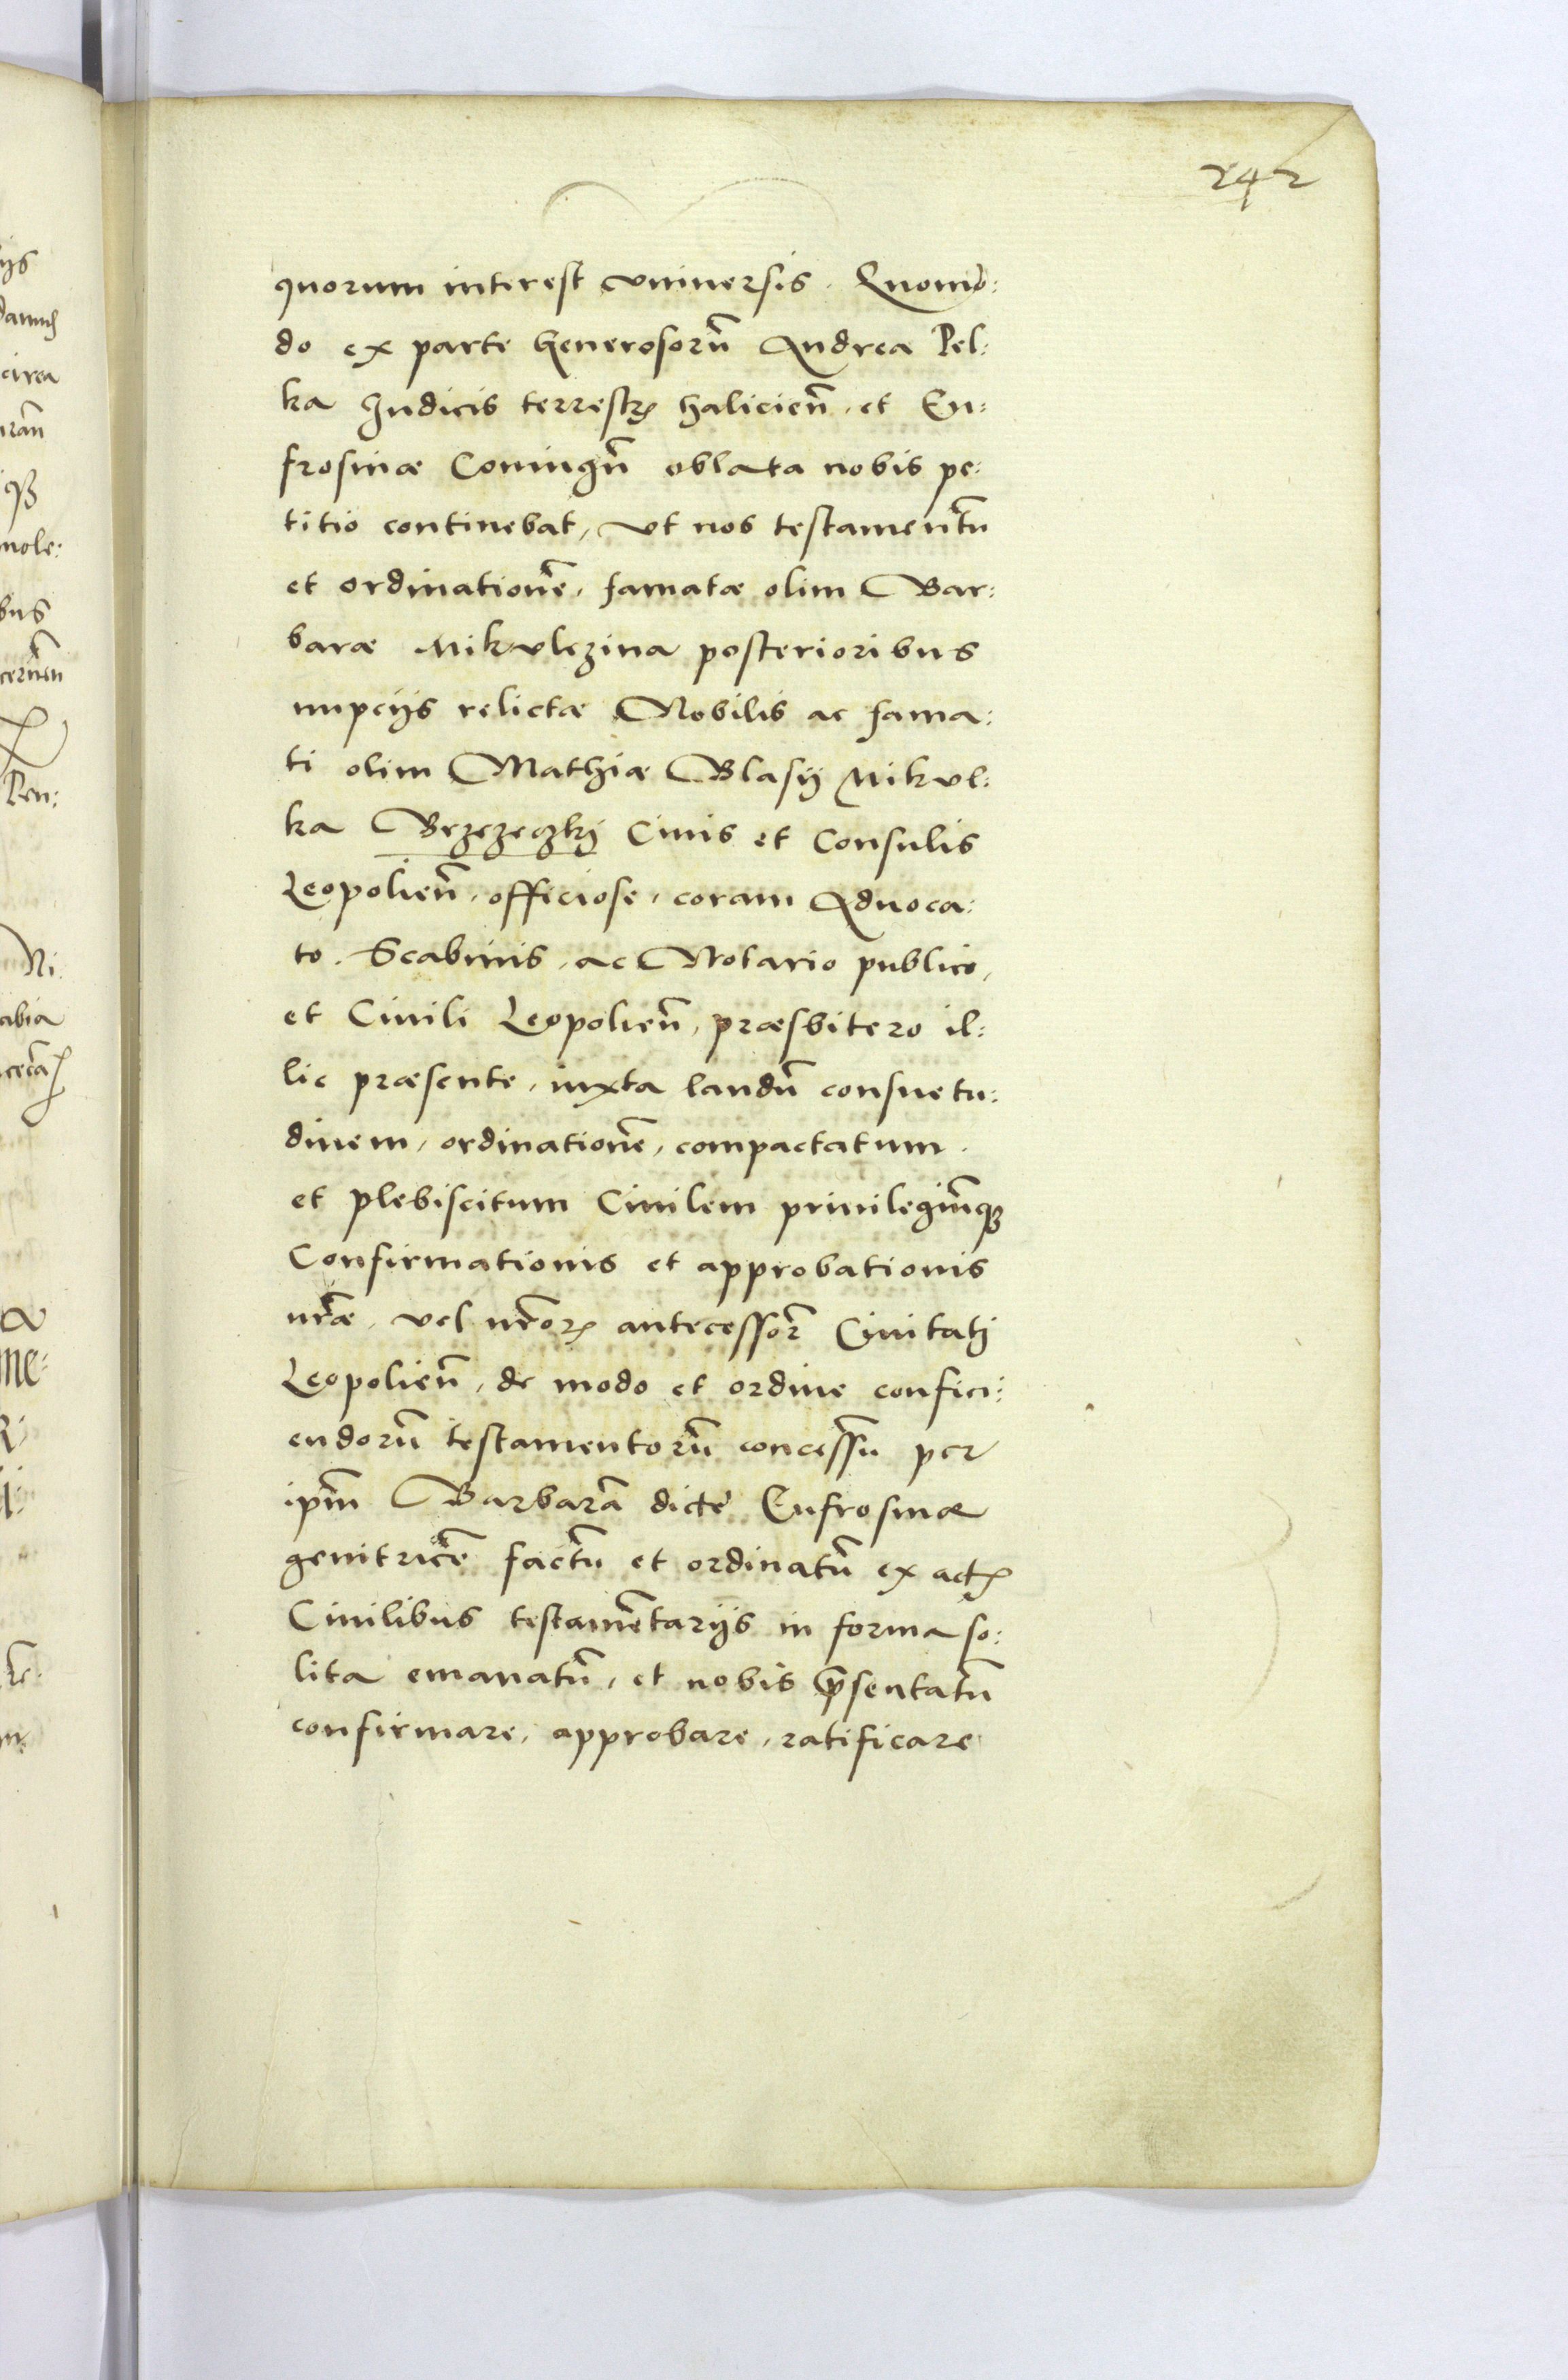 242
quorum interest vniuersis. Quomo:
do ex parte Generosorũ Andrea Pel:
ka Judicis terrestrꝭ halicieñ, et Eu:
frosinæ Coniugũ oblata nobis pe:
titio continebat, vt nos testamentũ
et ordinationẽ, famatæ olim Bar:
baræ Mikulczina posterioribus
nupcijs relictæ Nobilis ac fama:
ti olim Mathiæ Blasij Mikul:
ka Brzezeczkj Ciuis et Consulis
Leopolieñ, officiose, coram Aduoca:
to. Scabinis, ac Notario publico,
et Ciuili Leopolieñ, præsbitero il:
lic præsente, iuxta laudũ consuetu:
dinem, ordinationẽ, compactatum.
et plebiscitum Ciuilem priuilegiũqꝫ
Confirmationis et approbationis
nr̃æ, vel nr̃orꝭ antecessor̃ Ciuitatj
Leopolieñ, de modo et ordine confici:
endorũ testamentorũ concessũ per
ipm̃ Barbarã dictę Eufrosinæ
genitricẽ factũ et ordinatũ ex actꝭ
Ciuilibus testamẽtarijs in forma so:
lita emanatũ, et nobis p̃sentatũ
confirmare, approbare, ratificare